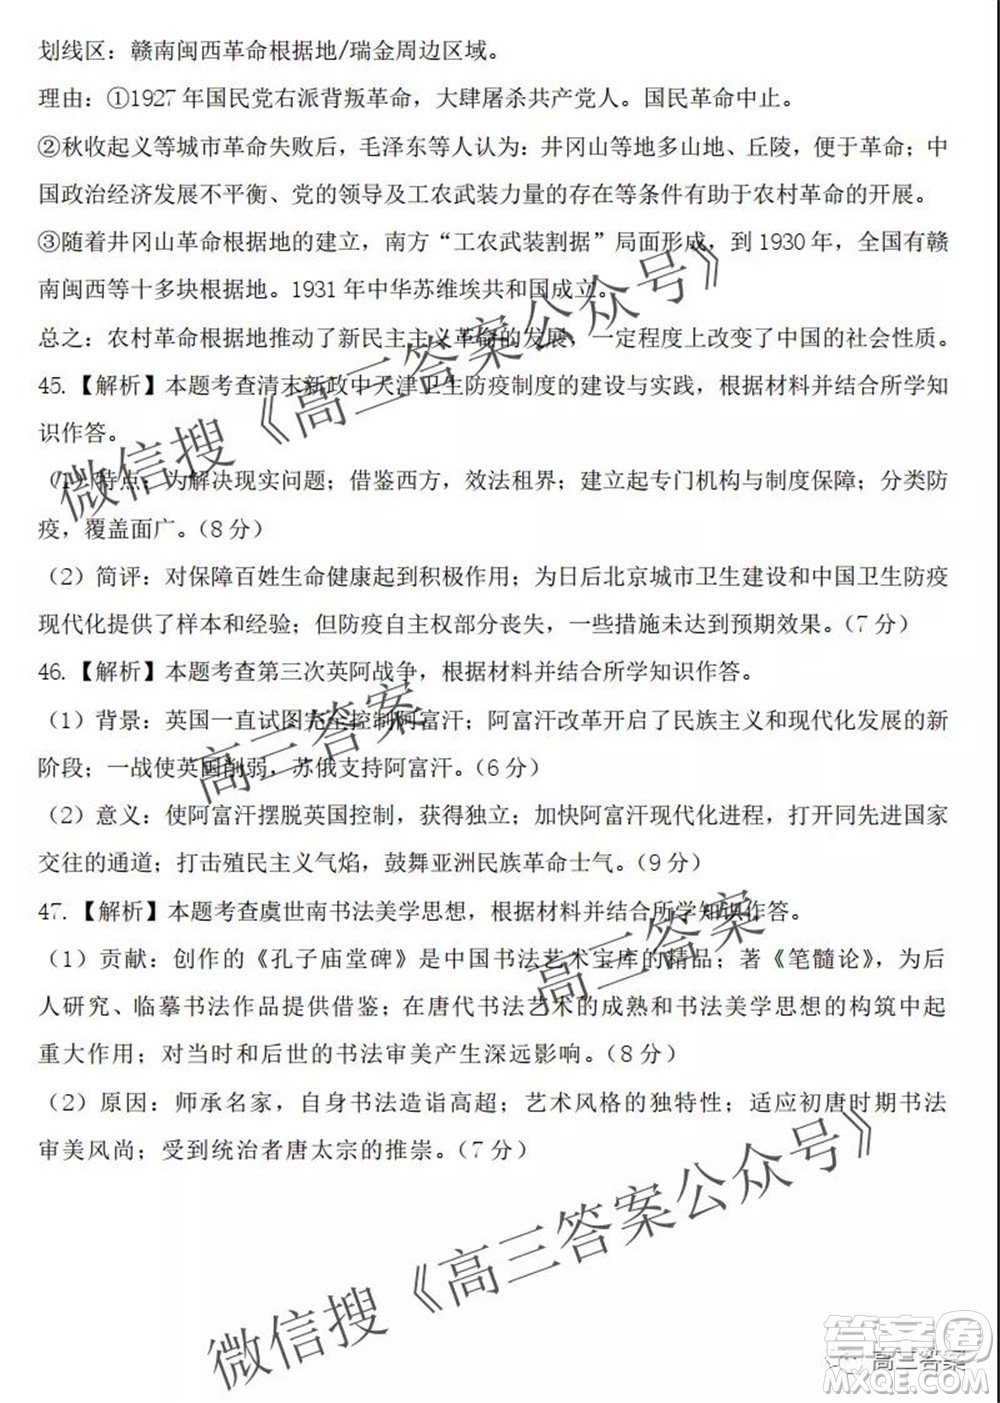 划线区：赣南闽西革命根据地/瑞金周边区域。
理由：①1927年国民党右派背叛革命，大肆屠杀共产党人。国民革命中止。
②秋收起义等城市革命失败后，毛泽东等人认为：井冈山等地多山地、丘陵，便于革命；中
国政治经济发展不平衡、党的领导及工农武装力量的存在等条件有助于农村革命的开展。
③随着井冈山革命根据地的建立，南方“工农武装割据”局面形成，到1930年，全国有赣
南闽西等十多块根据地。1931年中华苏维埃共和国成立。
总之：农村革命根据地推动了新民主主义革命的发展，一定程度上改变了中国的社会性质。
45.【解析】本题考查清末新政中天津卫生防疫制度的建设与实践，根据材料并结合所学知
识作答。
（1）特点：为解决现实问题；借鉴西方，效法租界；建立起专门机构与制度保障；分类防
疫，覆盖面广。（8分）
（2）简评：对保障百姓生命健康起到积极作用；为日后北京城市卫生建设和中国卫生防疫
现代化提供了样本和经验；但防疫自主权部分丧失，一些措施未达到预期效果。（7分）
46.【解析】本题考查第三次英阿战争，根据材料并结合所学知识作答。
（1）背景：英国一直试图完全控制阿富汗；阿富汗改革开启了民族主义和现代化发展的新
阶段；一战使英国削弱，苏俄支持阿富汗。（6分）
（2）意义：使阿富汗摆脱英国控制，获得独立；加快阿富汗现代化进程，打开同先进国家
交往的通道；打击殖民主义气焰，鼓舞亚洲民族革命士气。（9分）
47.【解析】本题考查虞世南书法美学思想，根据材料并结合所学知识作答。
（1）贡献：创作的《孔子庙堂碑》是中国书法艺术宝库的精品；著《笔髓论》，为后
人研究、临摹书法作品提供借鉴；在唐代书法艺术的成熟和书法美学思想的构筑中起
重大作用；对当时和后世的书法审美产生深远影响。（8分）
（2）原因：师承名家，自身书法造诣高超；艺术风格的独特性；适应初唐时期书法
审美风尚；受到统治者唐太宗的推崇。（7分）
微信搜《高三答案公众号》
高三答案
高三答案
微信搜《高三答案公众号》
答案圈
高三答案
MXQE.COM